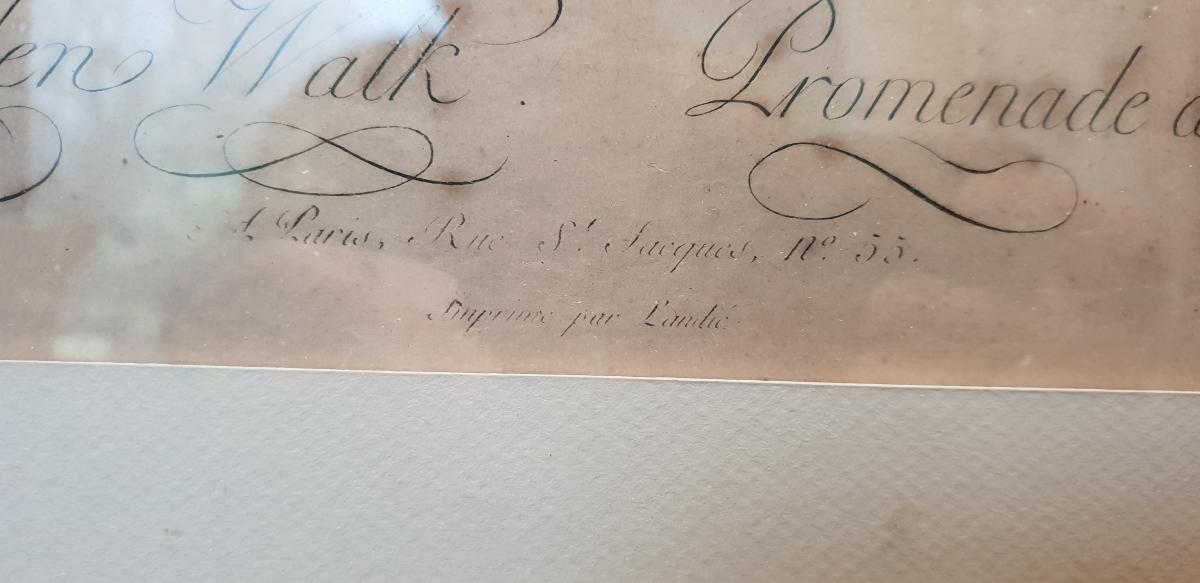 en Walk. Promenade
A Paris, Rue St. Jacques, No. 55.
Imprimé par